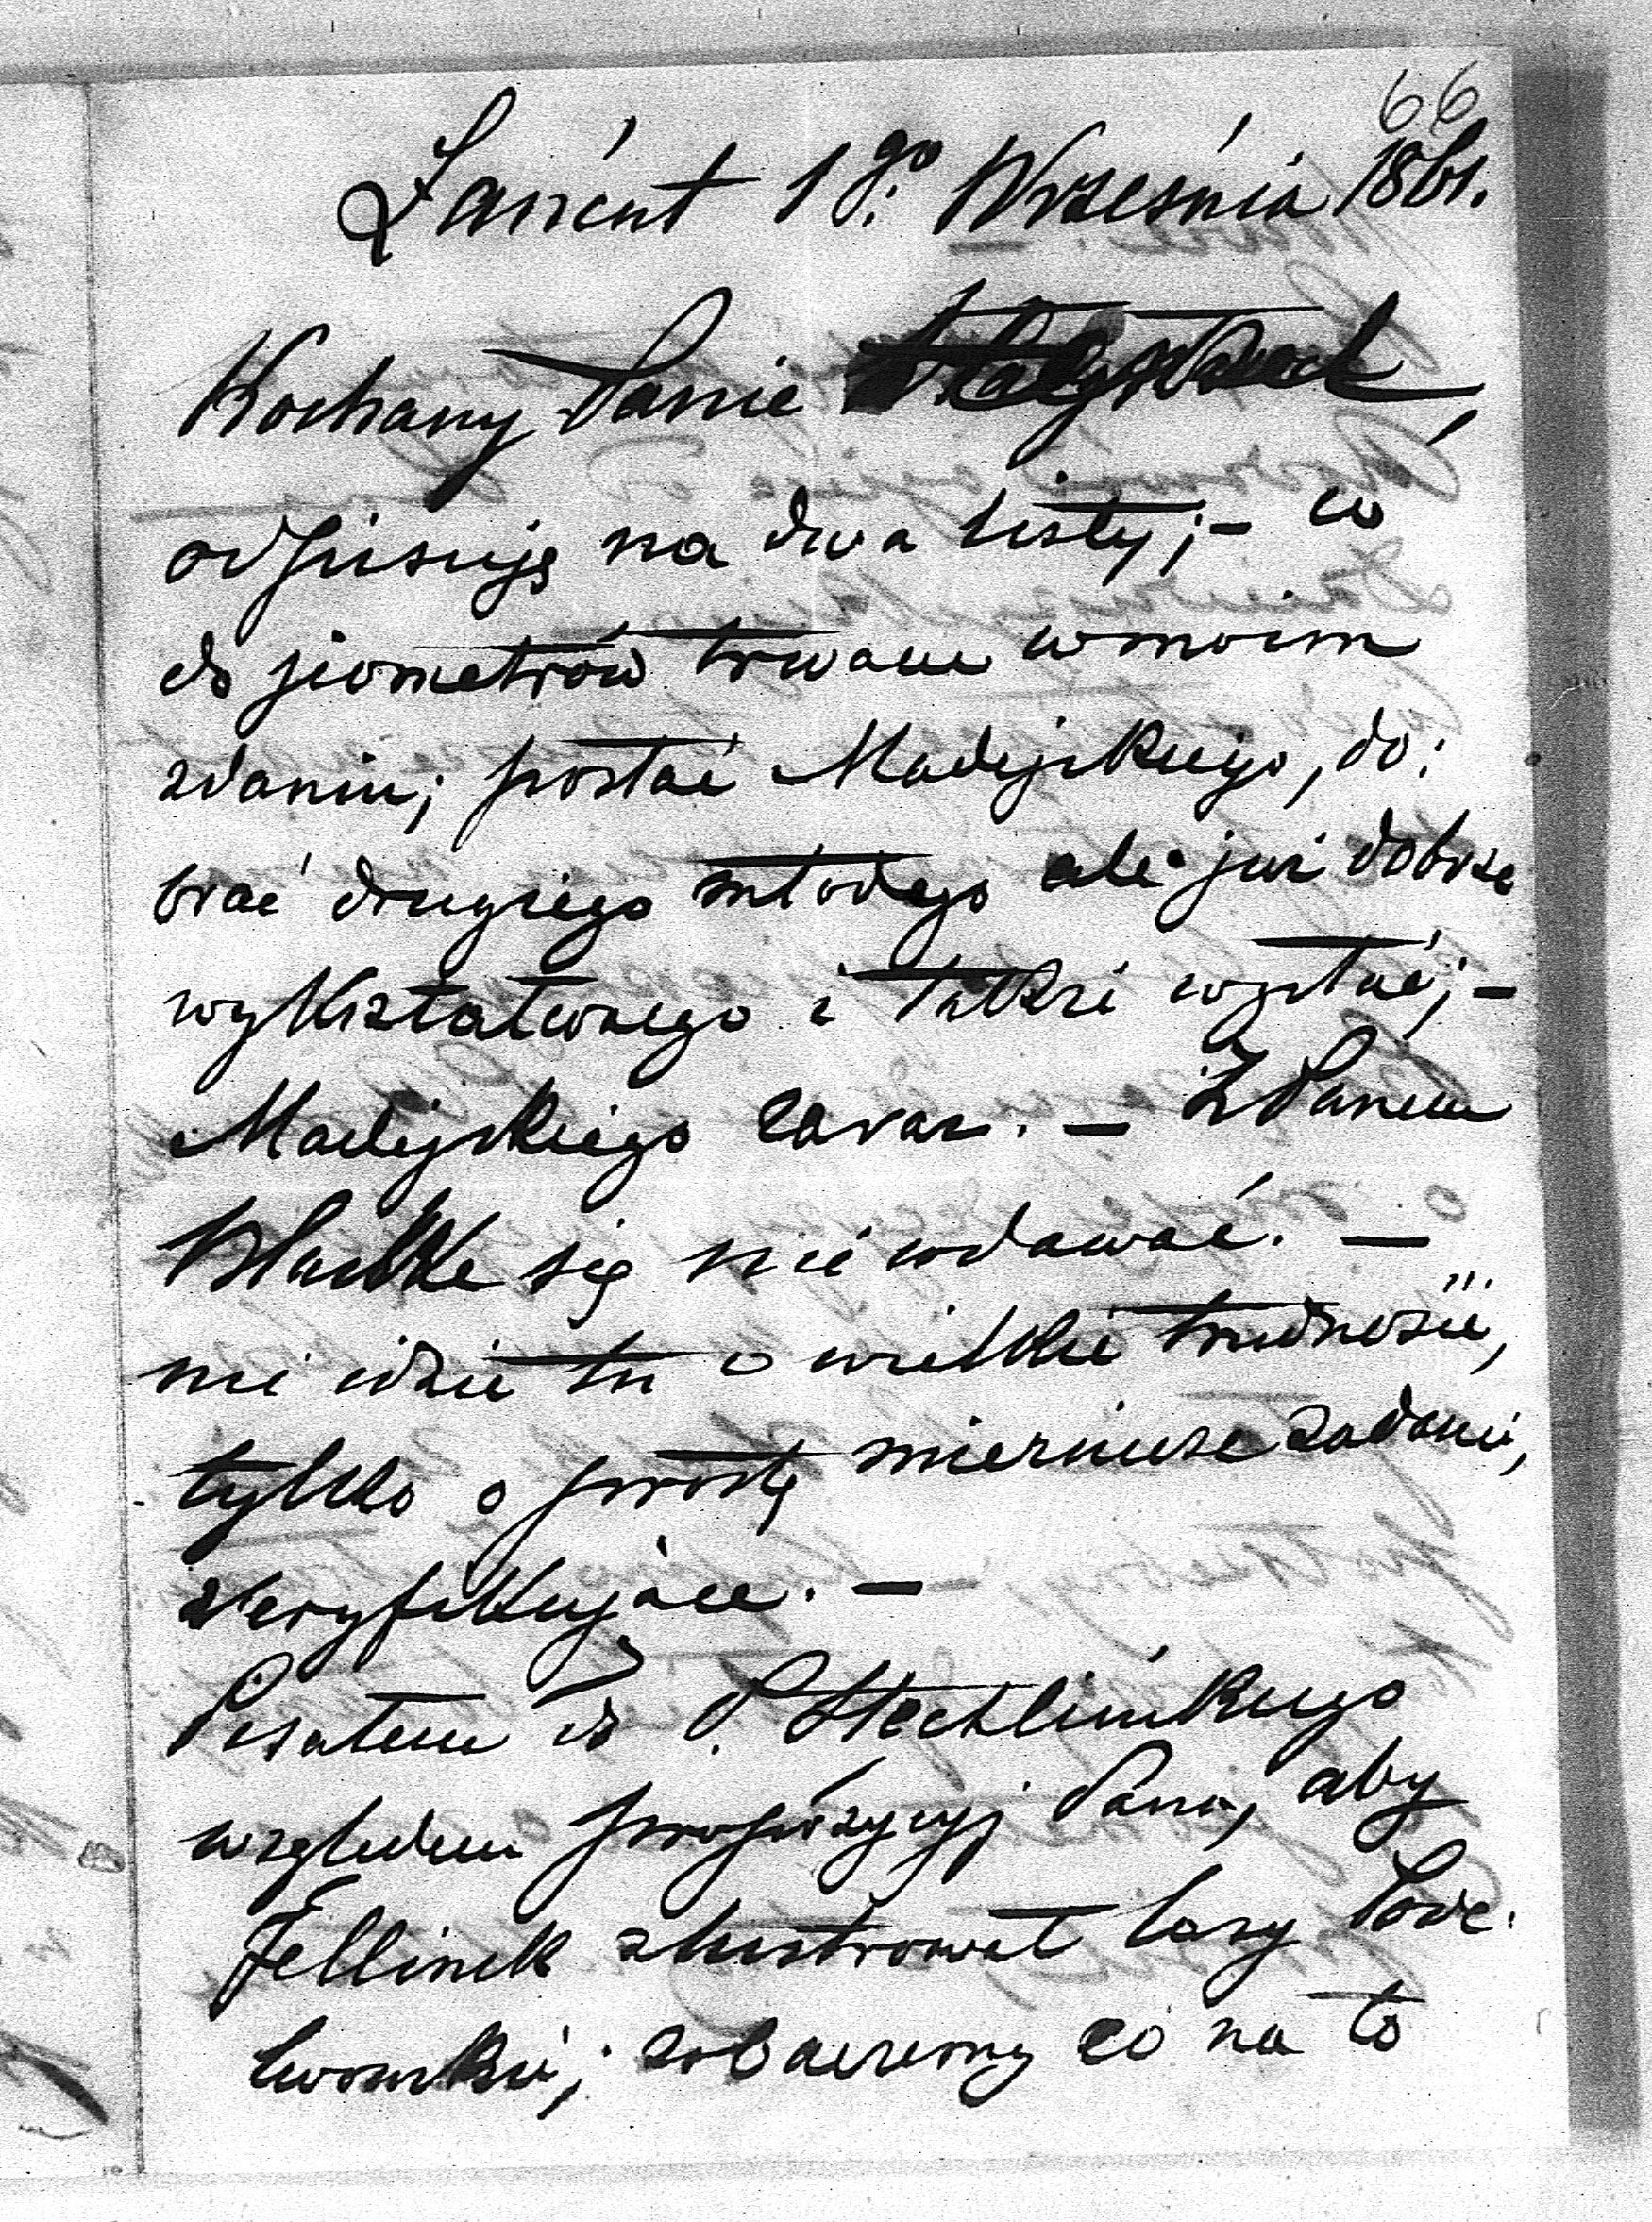 66
Łańcut 1go. Września 1861.
Kochany Panie
odpisuję na dwa listy; – co
do jeometrów trwam w moim
zdaniu; posłać Madejskiego, do:
brać drugiego młodego ale już dobrze
wykształconego i także wysłać; –
Madejskiego zaraz. – Z Panem
się nie wdawać. –
nie idzie tu o wielkie trudności,
tylko o prostę miernicze zadanie,
weryfikujące. –
Pisałem do P. Stechlińskiego
względem propozycyj Pana, aby
Jellinek zlustrował lasy Pode:
lwowskie; zobaczemy co na to